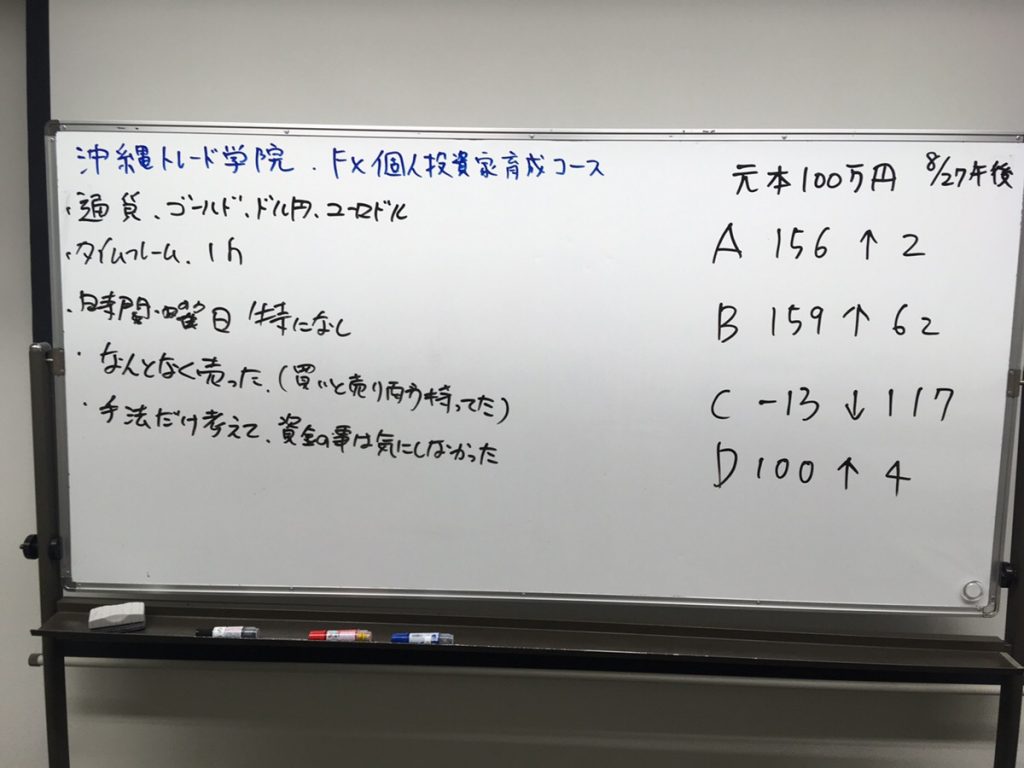 沖縄トレード学院．FX個人投資家育成コース
・通貨、ゴールド、ドル円、ユーロドル
・タイムフレーム、1h
・時間・曜日 特になし
・なんとなく売った、(買いと売り両方持ってた)
・手法だけ考えて、資金の事は気にしなかった
元本100万円 8/27午後
A 156 ↑ 2
B 159 ↑ 62
C -13 ↓ 117
D 100 ↑ 4